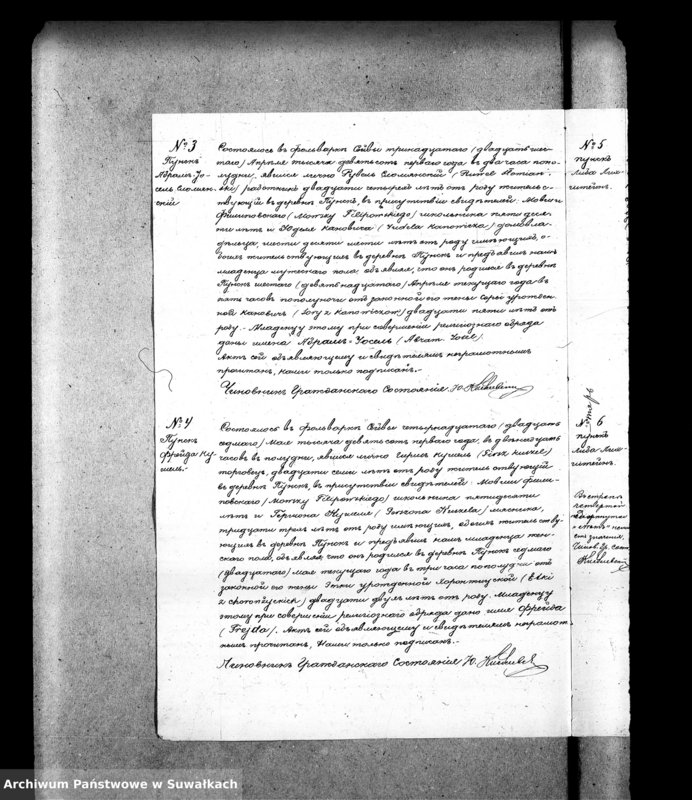 № 3
Пунскъ
Абрамъ-Іо-
сель Сломян-
скій
Состоялось въ фольваркѣ Сейвы тринадцатаго (двадцать шес-
таго) Апрѣля тысяча девятьсотъ перваго года въ два часа попо-
лудни, явился лично Рувель Сломянскій
работникъ двадцати четырехъ лѣтъ отъ роду жительс-
твующій въ деревнѣ Пунскъ, въ присутствіи свидѣтелей Мовши
Филиповскаго (Mowszy Filipowskiego) школьника пяти деся-
ти лѣтъ и Юделя Кановича (Judela Kanowicza) домовла-
дѣльца, шести десяти лѣтъ отъ роду имѣющихъ, о-
боихъ жительствующихъ въ деревнѣ Пунскъ и предъявилъ намъ
младенца мужескаго пола объявляя, что онъ родился въ деревнѣ
Пунскъ шестаго (девятнадцатаго) Апрѣля текущаго года въ
пять часовъ пополуночи отъ законной его жены Соры урожден-
ной Кановичъ (Sory z Kanowiczow) двадцати пяти лѣтъ отъ
роду. Младенцу этому при совершеніи религіознаго обряда
даны имена Абрамъ-Іосель (Abram-Josel).
Актъ сей объявляющему и свидѣтелямъ неграмотнымъ
прочитанъ, нами только подписанъ.
Чиновникъ Гражданскаго Состоянія
№ 4
Пунскъ
Фрейда Ку-
шель.
Состоялось въ фольваркѣ Сейвы четырнадцатаго (двадцать
седмаго) Мая тысяча девятьсотъ перваго года, въ двѣнадцать
часовъ въ полудни, явился лично Гиршъ Кушель
торговецъ, двадцати семи лѣтъ отъ роду жительствующій
въ деревнѣ Пунскъ, въ присутствіи свидѣтелей: Мовши Фили-
повскаго (Mowszy Filipowskiego) школьника пятидесяти
лѣтъ и мясника,
тридцати трехъ лѣтъ отъ роду имѣющихъ, обоихъ жительству-
ющихъ въ деревнѣ Пунскъ и предъявилъ намъ младенца жен-
скаго пола, объявляя что онъ родился въ деревнѣ Пунскъ седмаго
(двадцатаго) мая текущаго года въ три часа пополудни отъ
законной его жены Этки урожденной
двадцати двухъ лѣтъ отъ роду. Младенцу
этому при совершеніи религіознаго обряда дано имя Фрейда
(Frejda). Актъ сей объявляющему и свидѣтелямъ неграмот-
нымъ прочитанъ, Нами только подписанъ.
Чиновникъ Гражданскаго Состоянія
№ 5
Пунскъ
№ 6
Пунскъ
Archiwum Państwowe w Suwałkach